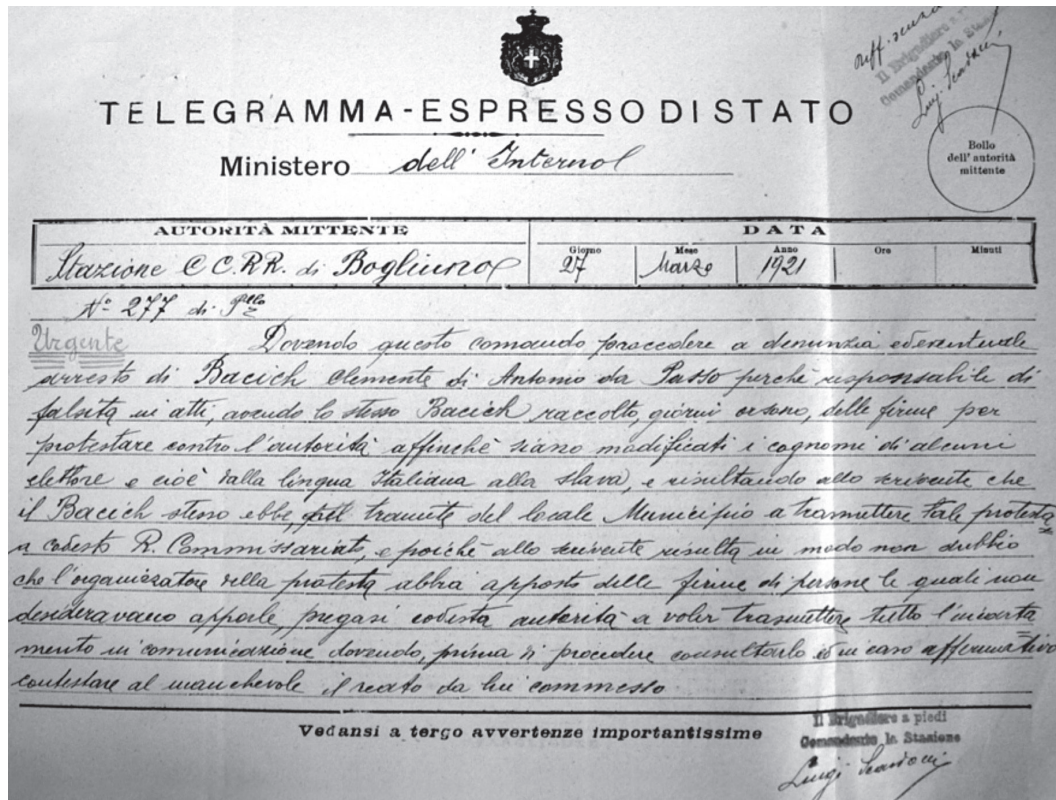 TELEGRAMMA-ESPRESSO DI STATO
Ministero dell' Interno
Il Brigadiere a
Comandante la Staz
Luigi
Bollo
dell' autorità
mittente
AUTORITÀ MITTENTE DATA
Giorno Mese Anno Ore Minuti
Stazione CC.RR. di Bogliuno 27 Marzo 1921
N° 277 di Pllo
Urgente Dovendo questo comando procedere a denunzia ed eventuale
arresto di Bacich Clemente di Antonio da Passo perché responsabile di
falsità in atti, avendo lo stesso Bacich raccolto, giorni orsono, delle firme per
protestare contro l'autorità affinché siano modificati i cognomi di alcuni
elettore e cioè dalla lingua Italiana alla slava, e risultando allo scrivente che
il Bacich stesso ebbe pel tramite del locale Municipio a trasmettere tale protesta
a codesto R. Commissariato, e poiché allo scrivente risulta in modo non dubbio
che l'organizzatore della protesta abbia apposto delle firme di persone le quali non
desideravano apporle, pregasi codesta autorità a voler trasmettere tutto l'incarta
mento in comunicazione dovendo, prima di procedere consultarlo ed in caso affermativo
contestare al manchevole il reato da lui commesso
Vedansi a tergo avvertenze importantissime
Il Brigadiere a piedi
Comandante la Stazione
Luigi